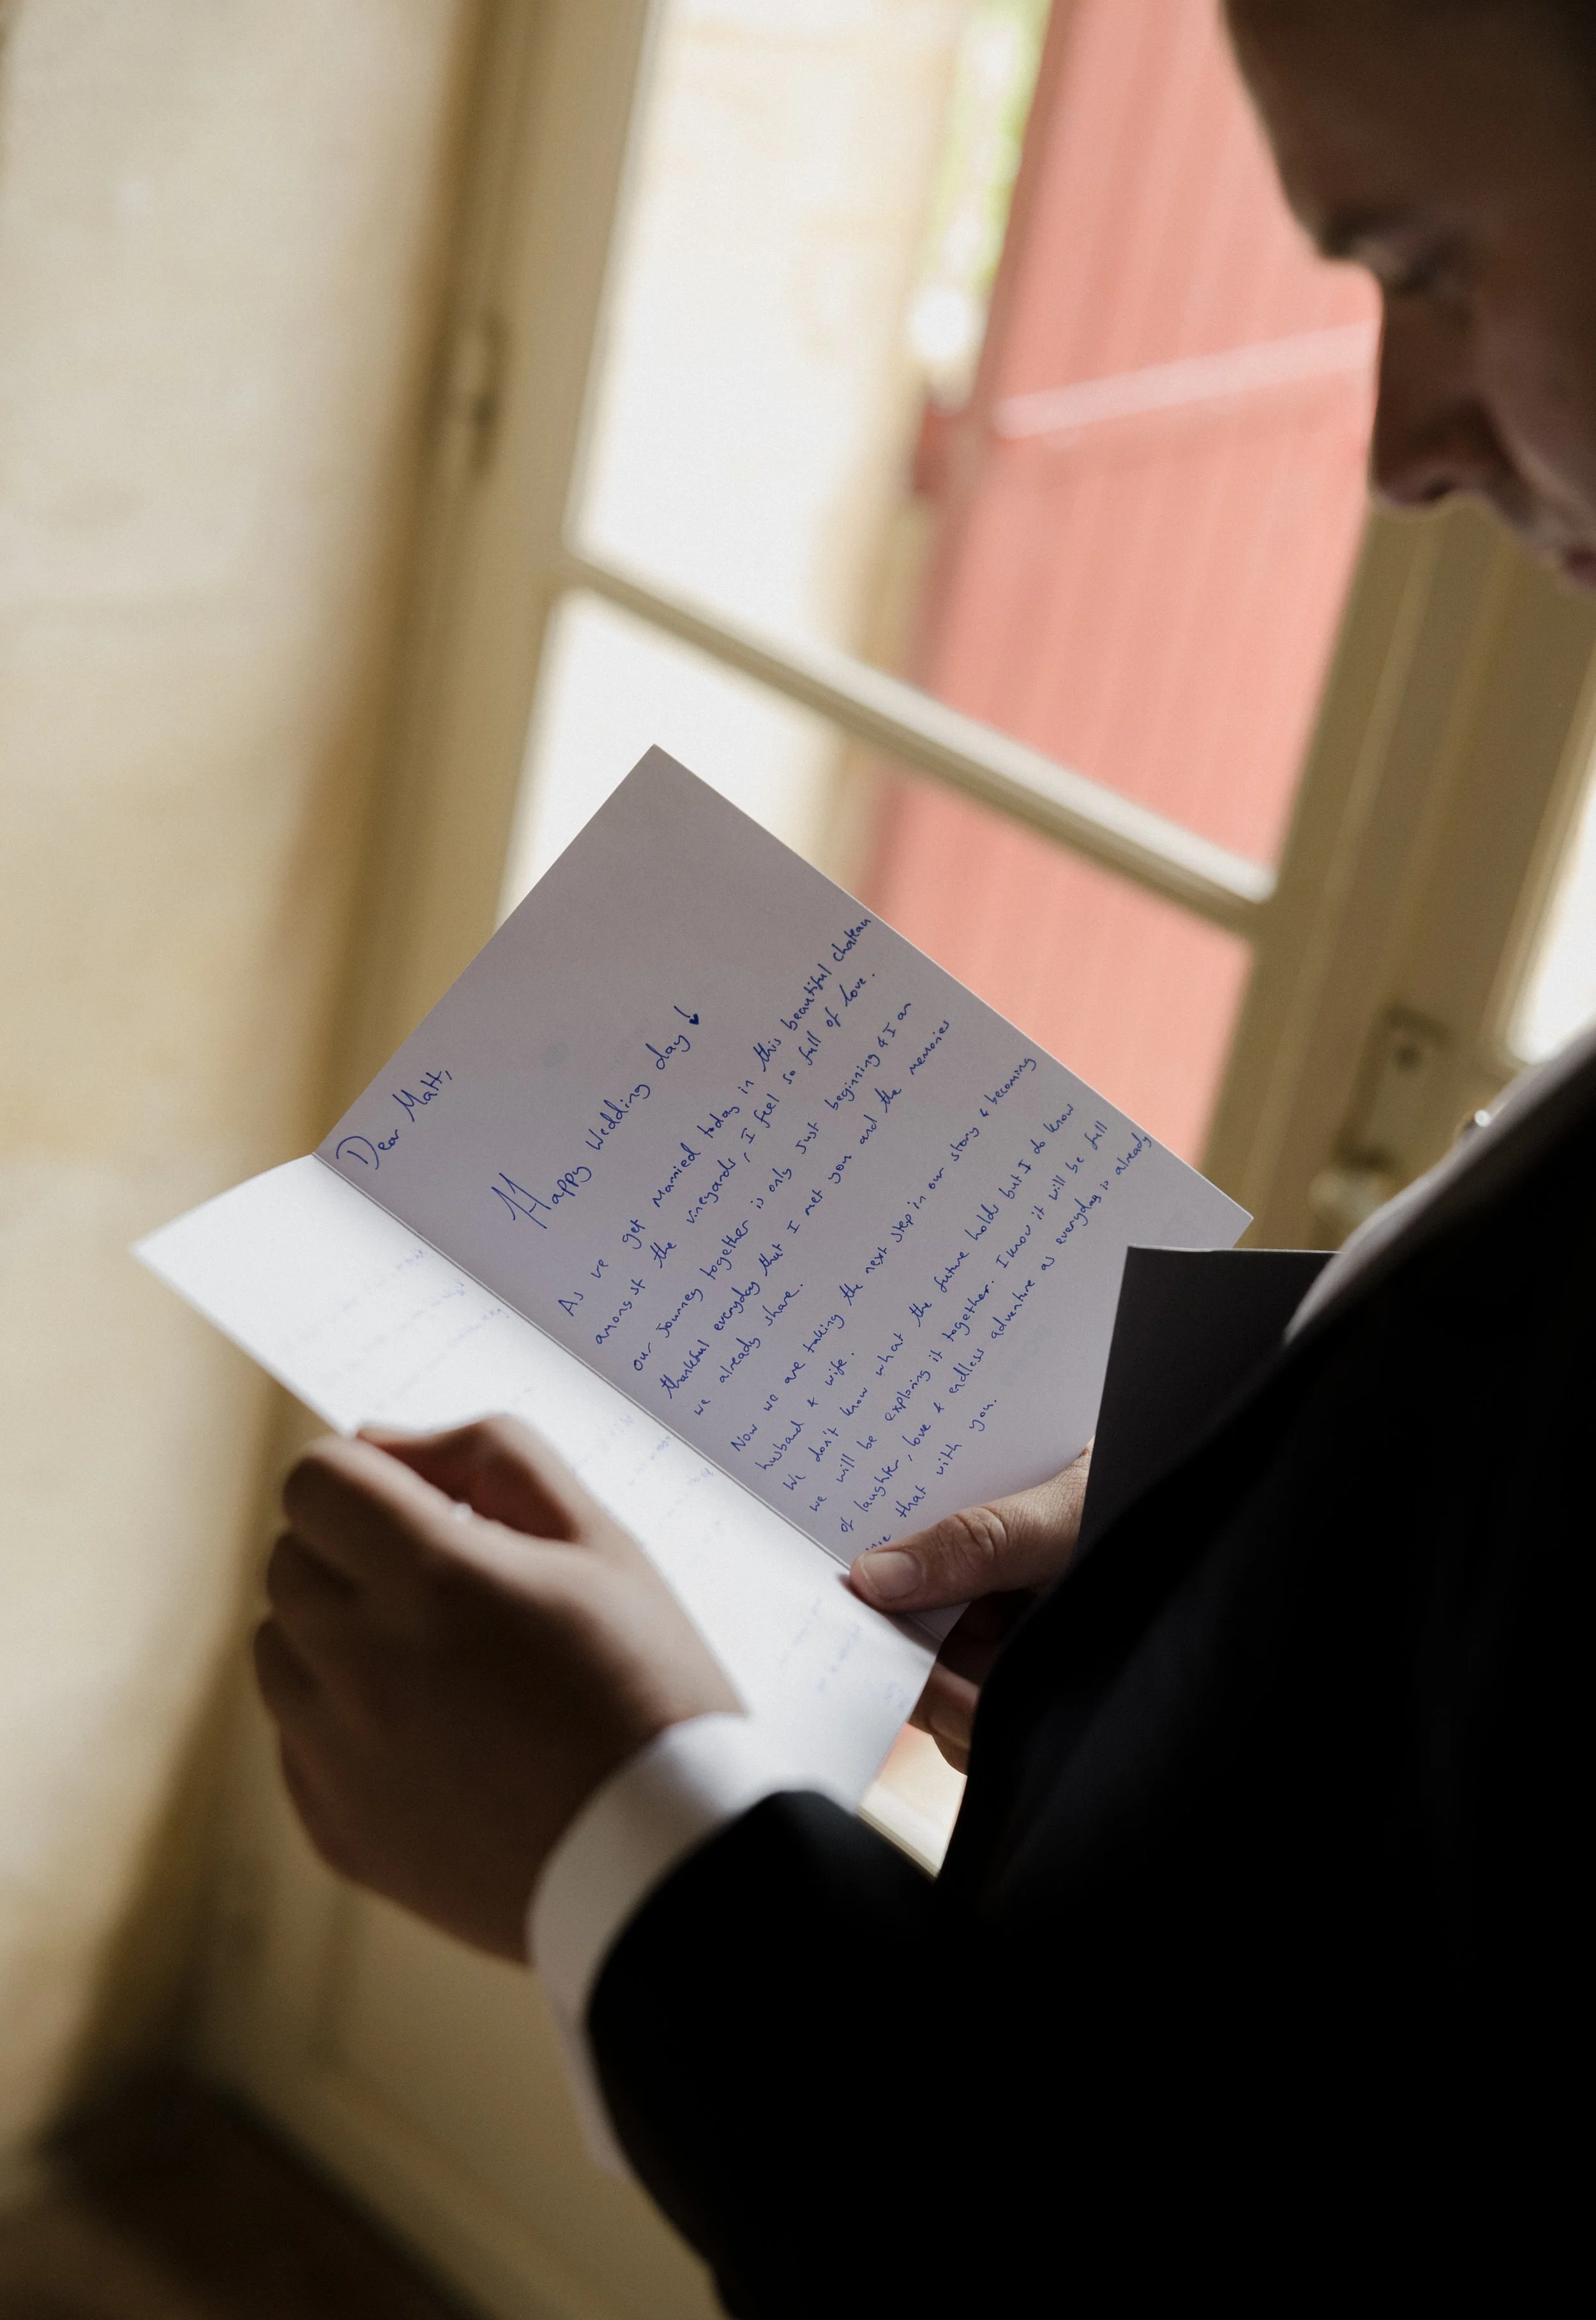 Dear Matt,
Happy Wedding day!
As we get married today in this beautiful chateau
amonst the vineyards, I feel so full of love.
our journey together is only just beginning & I am
thankful everyday that I met you and the memories
we already share.
Now we are taking the next step in our story & becoming
husband & wife.
We don't know what the future holds but I do know
we will be exploring it together. I know it will be full
of laughter, love & endless adventure as everyday is already
that with you.